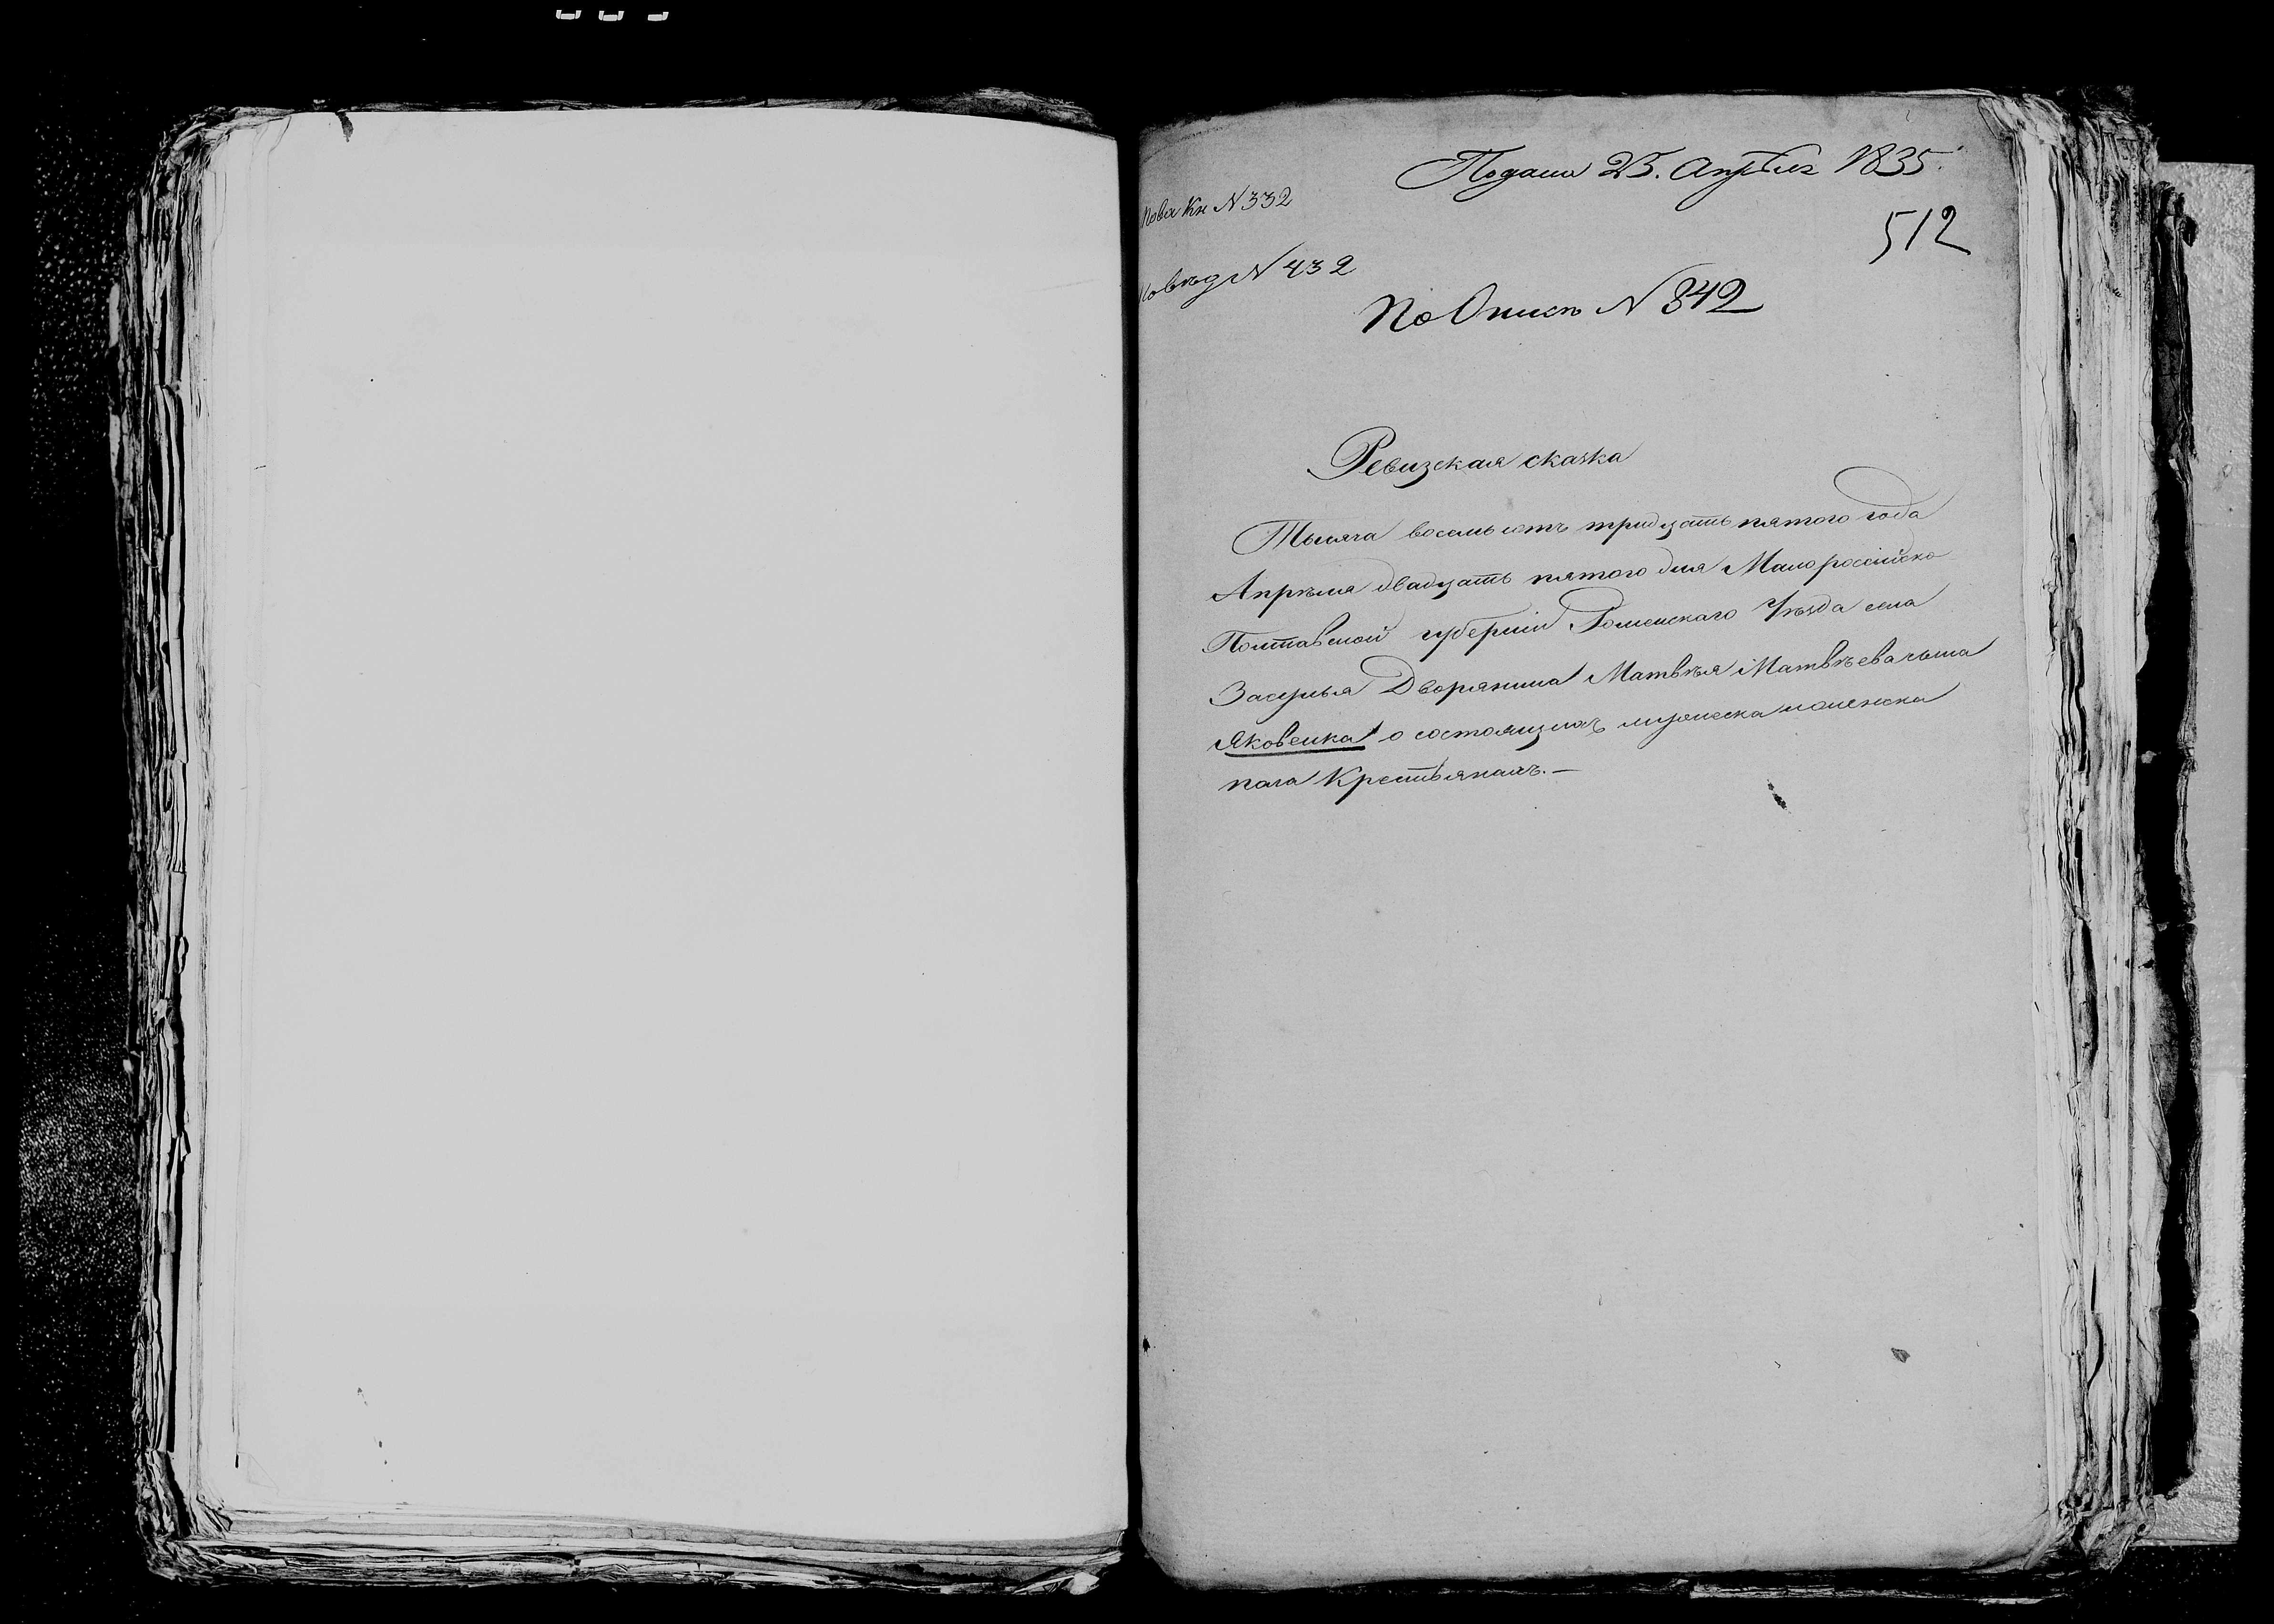 Подана 25. Апрѣля 1835.
Кн N 332
512
N 432
По Описи N 342
Ревизская сказка
Тысяча восемь сотъ тридцать пятого года
Апрѣля двадцать пятого дня Малороссійско
Полтавской губерніи Роменскаго Уѣзда села
Засулья Дворянина Матвѣя Матвѣева сына
Яковенка о состоящихъ мужеска и женска
пола Крестьянахъ.—